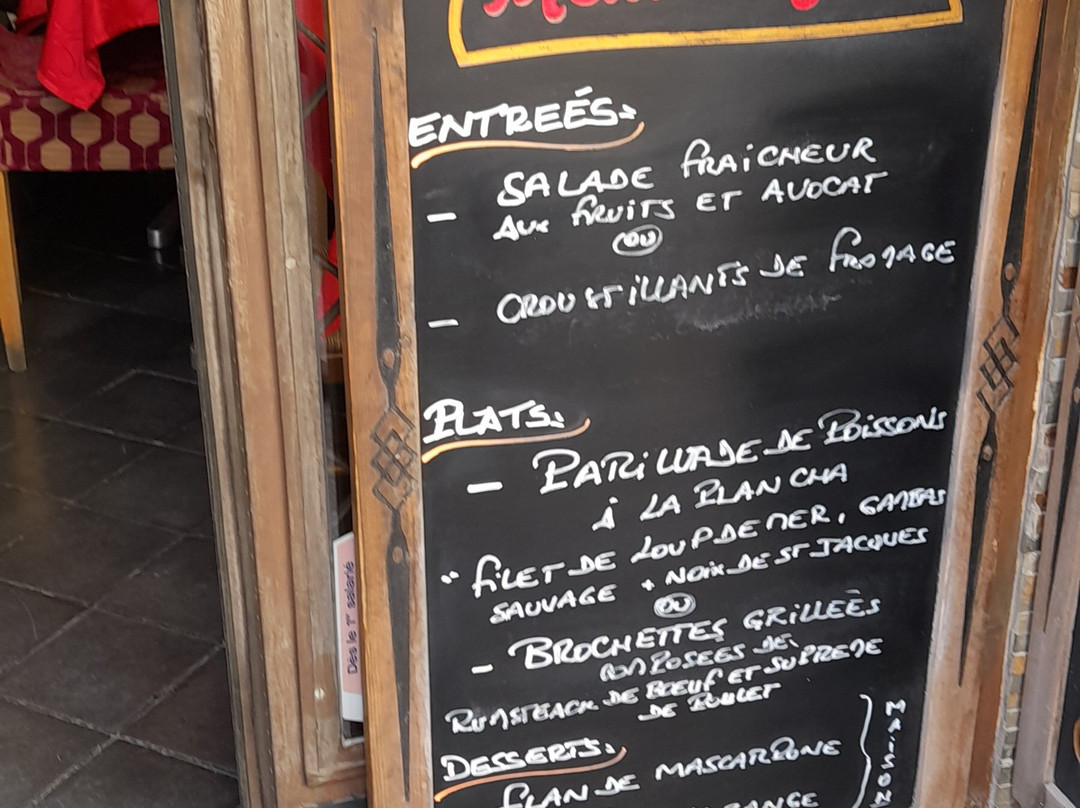 ENTREÉS:
- SALADE fRAiCHEUR
AUX fRUiTS ET AVOCAT
OU
- CROUSTiLLANTS DE fROMAGE
PLATS:
- PARiLLADE DE POiSSONS
À LA PLANCHA
" fiLET DE LOUP DE MER, GAMBAS
SAUVAGE + NOiX DE ST JACQUES
OU
- BROCHETTES GRiLLEÈS
COMPOSEES DE
RUMSTEACK DE BOEUf ET SUPREME
DE POULET
DESSERTS:
fLAN DE MASCARPONE
ORANGE
Dès le 1er salarié